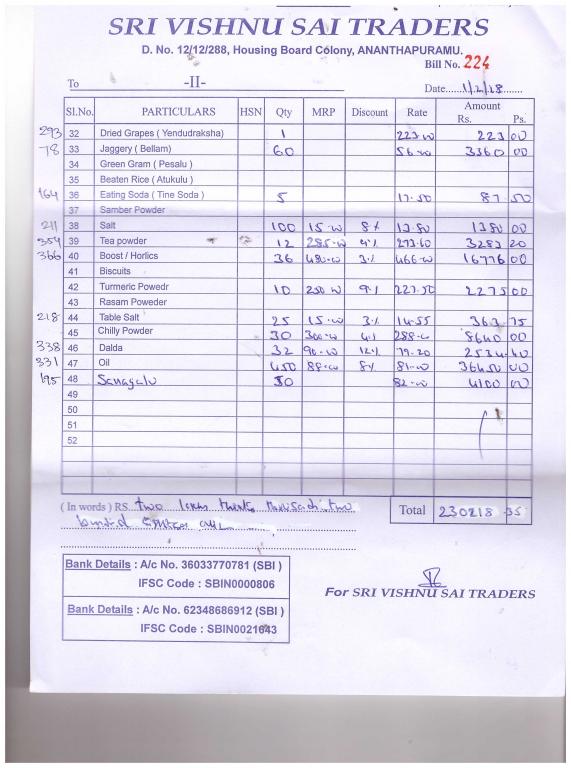 SRI VISHNU SAI TRADERS
D. No. 12/12/288, Housing Board Colony, ANANTHAPURAMU.
Bill No. 224
To -II- Date......1/2/18.......
Sl.No. PARTICULARS HSN Qty MRP Discount Rate Amount
Rs. Ps.
293 32 Dried Grapes ( Yendudraksha) 1 223-00 223 00
78 33 Jaggery ( Bellam) 60 56-00 3360 00
34 Green Gram ( Pesalu )
35 Beaten Rice ( Atukulu )
164 36 Eating Soda ( Tine Soda ) 5 17.50 87 50
37 Samber Powder
211 38 Salt 100 15-00 8% 13.80 1380 00
354 39 Tea powder 12 285-00 4% 273.60 3283 20
366 40 Boost / Horlics 36 480-00 3% 466-00 16776 00
41 Biscuits
42 Turmeric Powedr 10 250 00 9% 227.50 2275 00
43 Rasam Poweder
218 44 Table Salt 25 15-00 3% 14.55 363 75
45 Chilly Powder 30 300-00 4% 288-00 8640 00
338 46 Dalda 32 90-00 12% 79.20 2534 40
331 47 Oil 450 88-00 8% 81-00 36450 00
195 48 Sanagalu 50 82-00 4100 00
49
50
51
52
( In words ) RS. two lakhs thirty thousand two Total 230218 35
hundred
Bank Details : A/c No. 36033770781 (SBI )
IFSC Code : SBIN0000806
Bank Details : A/c No. 62348686912 (SBI )
IFSC Code : SBIN0021643
For SRI VISHNU SAI TRADERS